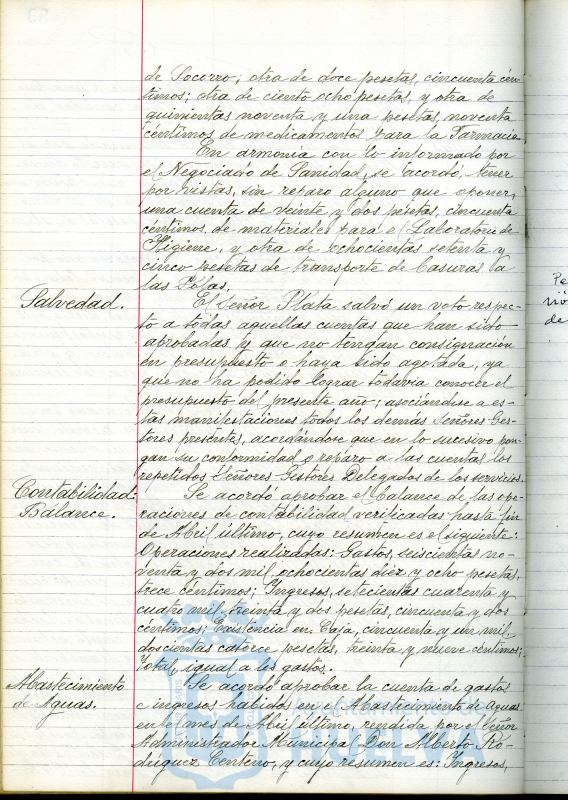 de Socorro; otra de doce pesetas, cincuenta cén-
timos; otra de ciento ocho pesetas, y otra de
quinientas noventa y una pesetas, noventa
céntimos de medicamentos para la Farmacia
En armonía con lo informado por
el Negociado de Sanidad, se acordó, tener
por vistas, sin reparo alguno que oponer,
una cuenta de veinte y dos pesetas, cincuenta
céntimos de materiales para el Laboratorio de
Higiene, y otra de ochocientas setenta y
cinco pesetas de transporte de basuras a
las
Salvedad. El Señor Plata salvó un voto respec-
to a todas aquellas cuentas que han sido
aprobadas y que no tengan consignación
en presupuesto o haya sido agotada, ya
que no ha podido lograr todavia conocer el
presupesto del presente año; asociándose a es-
tas manifestaciones todos los demás Señores Ges-
tores presentes, acordándose que en lo sucesivo pon-
gan su conformidad o reparo a las cuentas los
repetidos Señores Gestores Delegados de los servicios.
Contabilidad- Se acordó aprobar el balance de las ope-
Balance. raciones de contabilidad verificadas hasta fin
de Abril último, cuyo resumen es el siguiente:
Operaciones realizadas: Gastos, seiscientas no-
venta y dos mil ochocientas diez y ocho pesetas,
trece céntimos; Ingresos, setecientas cuarenta y
cuatro mil treinta y dos pesetas, cincuenta y dos
céntimos; Existencia en Caja, cincuenta y un mil
doscientas catorce pesetas, treinta y nueve céntimos;
total, igual a los gastos.
Abastecimiento Se acordó aprobar la cuenta de gastos
de Aguas. e ingresos habidos en el Abastecimiento de Aguas
en el mes de Abril último, rendida por el Señor
Administrador Municipal Don Alberto Ro-
dríguez Centeno, y cuyo resumen es: Ingresos,